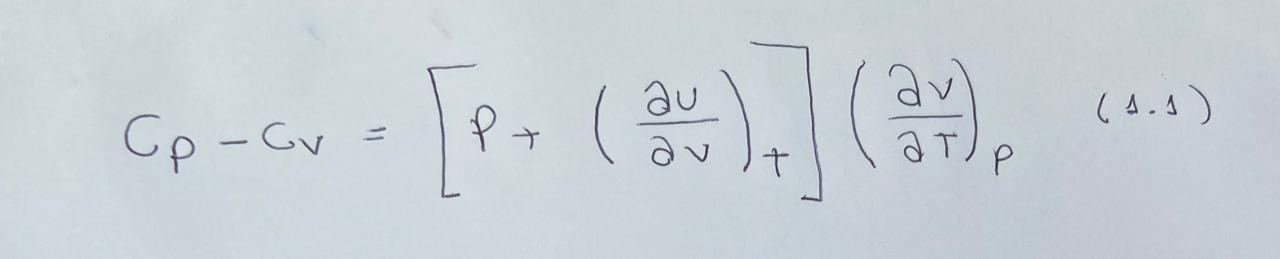 Cp - Cv = [P + (∂U/∂V)_T] (∂V/∂T)_P (1.1)